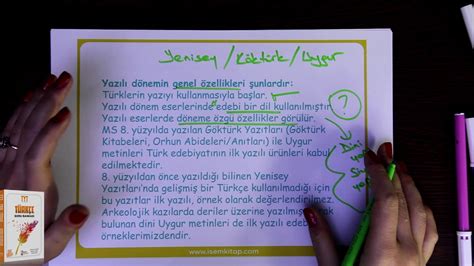 Yenisey / Köktürk / Uygur
Yazılı dönemin genel özellikleri şunlardır:
Türklerin yazıyı kullanmasıyla başlar.
Yazılı dönem eserlerinde edebi bir dil kullanılmıştır.
Yazılı eserlerde döneme özgü özellikler görülür.
?
MS 8. yüzyılda yazılan Göktürk Yazıtları (Göktürk
Kitabeleri, Orhun Abideleri/Anıtları) ile Uygur
metinleri Türk edebiyatının ilk yazılı ürünleri kabul
edilmektedir.
Dini
8. yüzyıldan önce yazıldığı bilinen Yenisey
Yazıtları'nda gelişmiş bir Türkçe kullanılmadığı için
bu yazıtlar ilk yazılı, örnek olarak değerlendirilmez.
Arkeolojik kazılarda deriler üzerine yazılmış
bulunan dini Uygur metinleri de ilk edebiyat
örneklerimizdendir.
www.isemkitap.com
TYT
TÜRKÇE